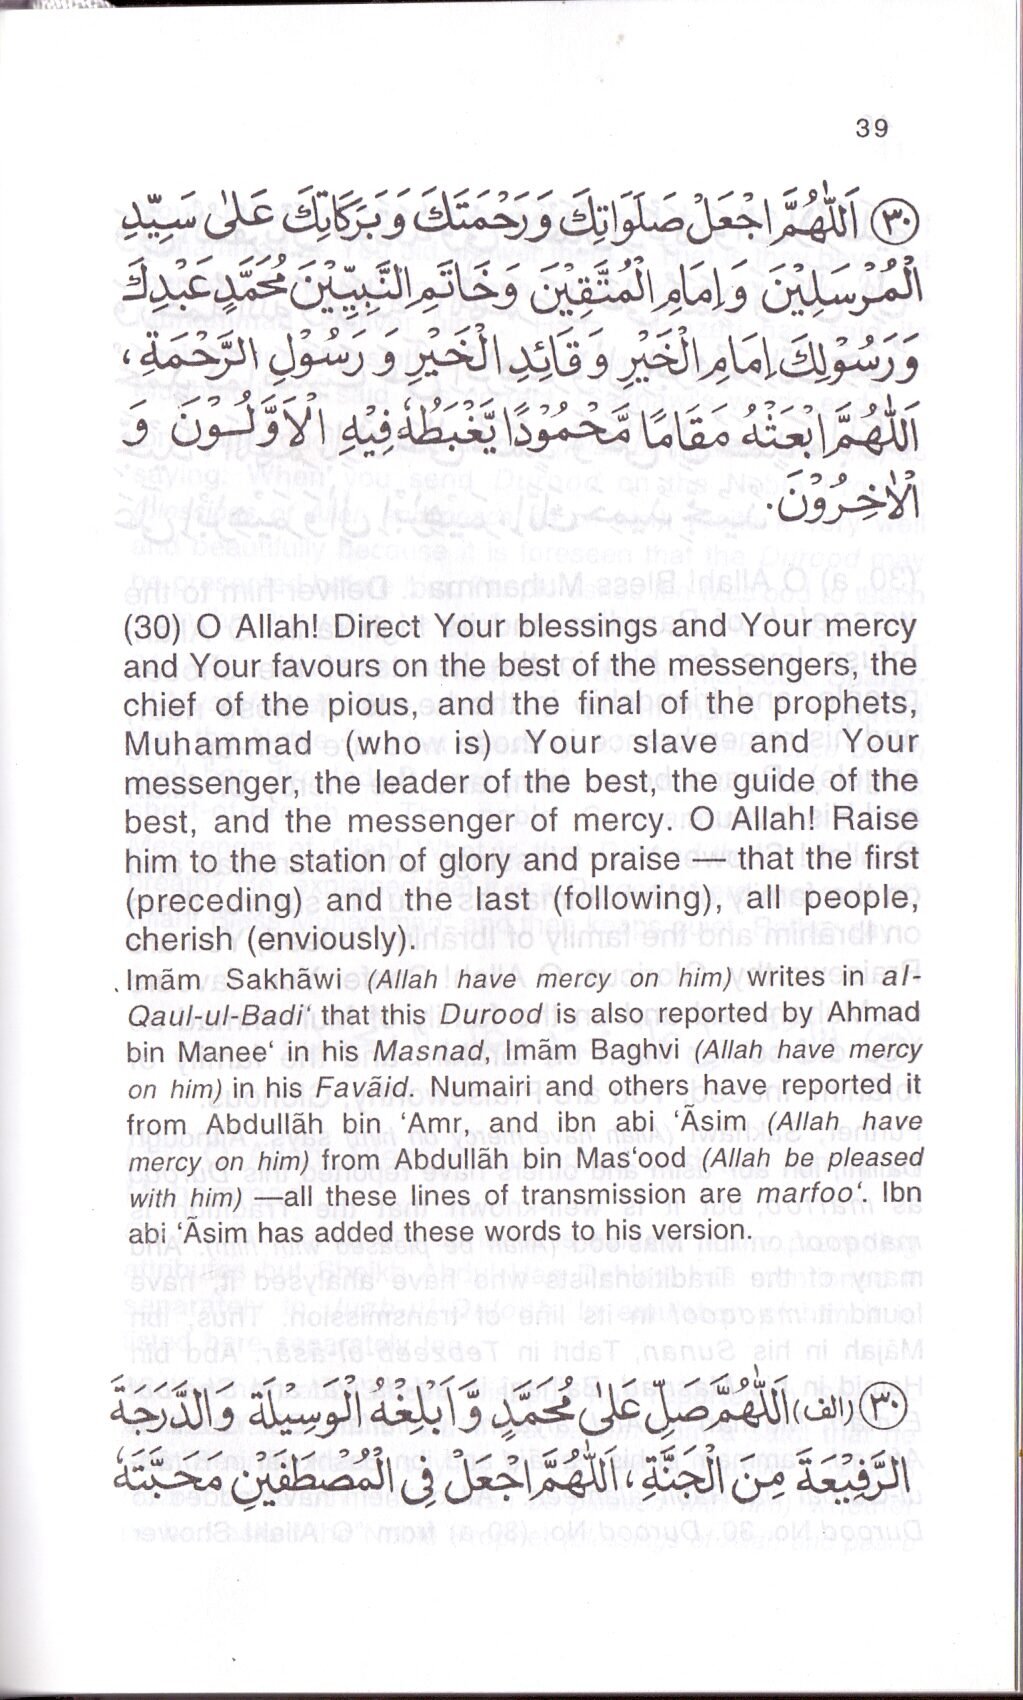 39
٣٠ اَللّٰهُمَّ اجْعَلْ صَلَوَاتِكَ وَرَحْمَتَكَ وَبَرَكَاتِكَ عَلٰى سَيِّدِ
الْمُرْسَلِيْنَ وَاِمَامِ الْمُتَّقِيْنَ وَخَاتَمِ النَّبِيِّيْنَ مُحَمَّدٍ عَبْدِكَ
وَرَسُوْلِكَ اِمَامِ الْخَيْرِ وَقَائِدِ الْخَيْرِ وَرَسُوْلِ الرَّحْمَةِ،
اَللّٰهُمَّ ابْعَثْهُ مَقَامًا مَّحْمُوْدًا يَّغْبَطُهٗ فِيْهِ الْاَوَّلُوْنَ وَ
الْاٰخِرُوْنَ.
(30) O Allah! Direct Your blessings and Your mercy
and Your favours on the best of the messengers, the
chief of the pious, and the final of the prophets,
Muhammad (who is) Your slave and Your
messenger, the leader of the best, the guide of the
best, and the messenger of mercy. O Allah! Raise
him to the station of glory and praise — that the first
(preceding) and the last (following), all people,
cherish (enviously).
Imãm Sakhãwi (Allah have mercy on him) writes in al-
Qaul-ul-Badi‘ that this Durood is also reported by Ahmad
bin Manee‘ in his Masnad, Imãm Baghvi (Allah have mercy
on him) in his Favãid. Numairi and others have reported it
from Abdullãh bin ‘Amr, and ibn abi ‘Ãsim (Allah have
mercy on him) from Abdullãh bin Mas‘ood (Allah be pleased
with him) —all these lines of transmission are marfoo‘. Ibn
abi ‘Ãsim has added these words to his version.
٣٠ (الف) اَللّٰهُمَّ صَلِّ عَلٰى مُحَمَّدٍ وَّاَبْلِغْهُ الْوَسِيْلَةَ وَالدَّرَجَةَ
الرَّفِيْعَةَ مِنَ الْجَنَّةِ، اَللّٰهُمَّ اجْعَلْ فِى الْمُصْطَفَيْنِ مَحَبَّتَهٗ